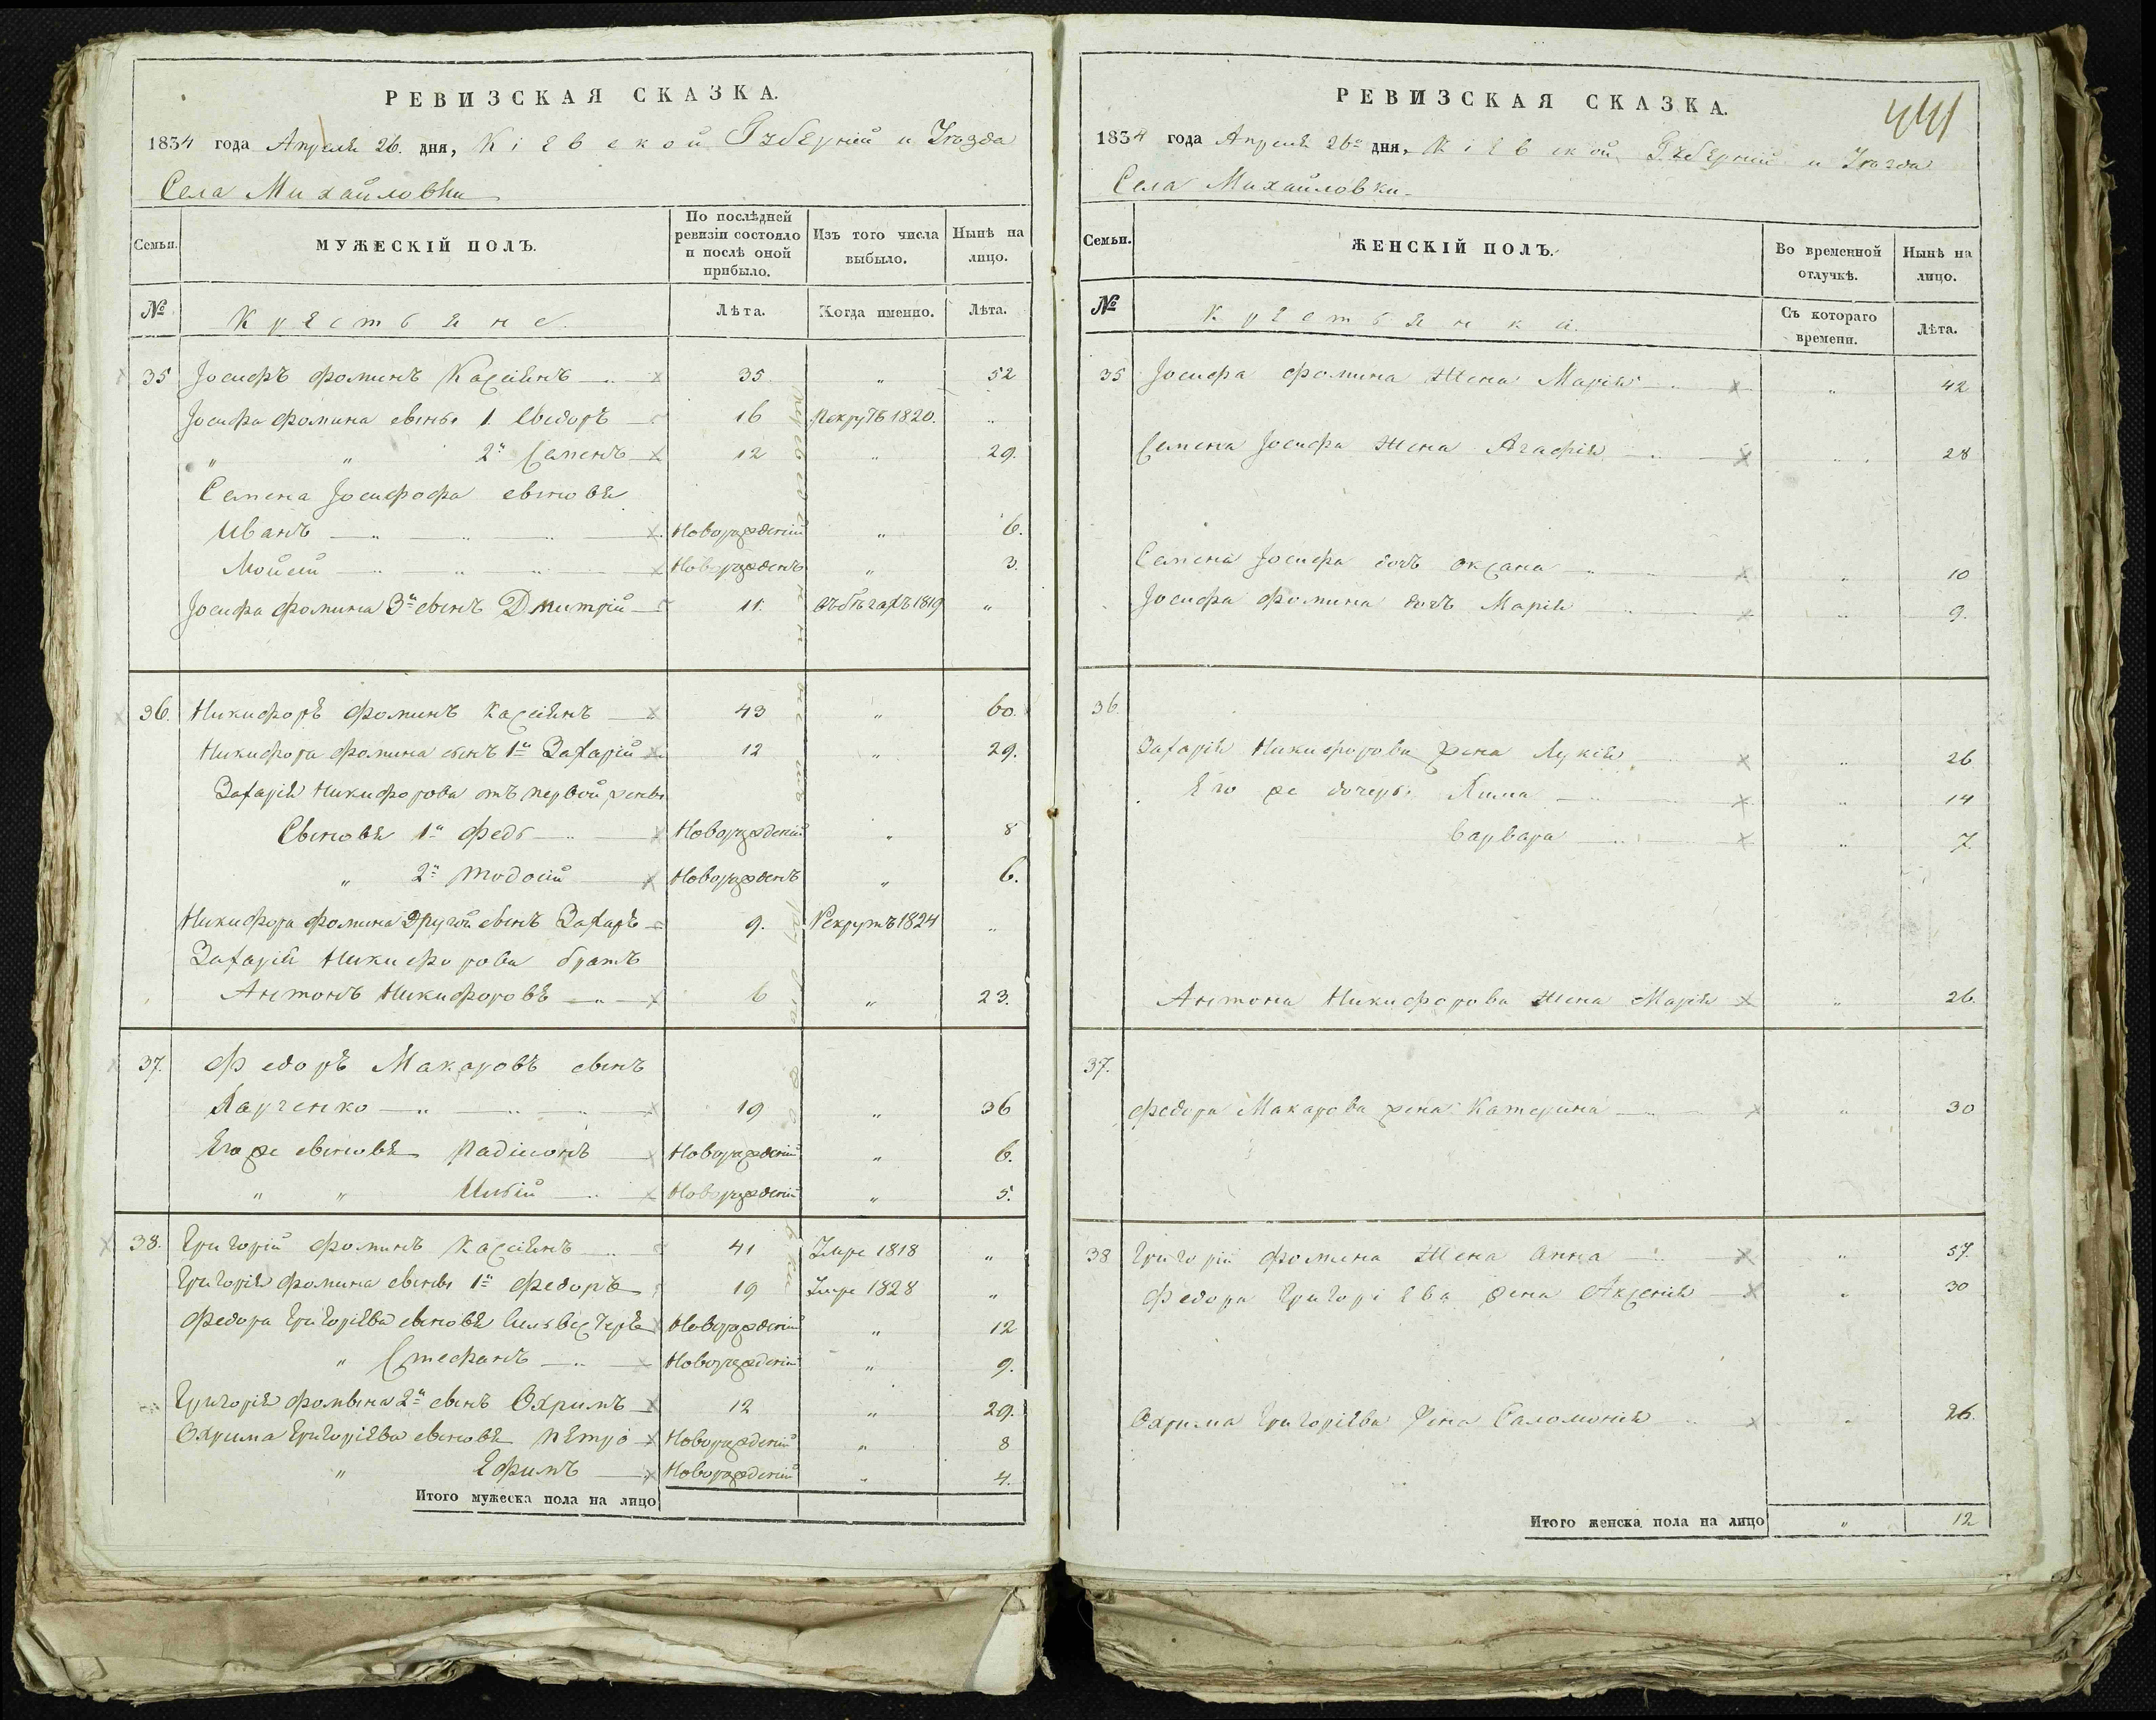 РЕВИЗСКАЯ СКАЗКА.
1834 года Апреля 26. дня, Кіевской Губерніи и Уезда
Села Михайловки
Семьи.
МУЖЕСКІЙ ПОЛЪ.
По послѣдней ревизіи состояло и послѣ оной прибыло.
Изъ того числа выбыло.
Нынѣ на лицо.
№
Крестьяне.
Лѣта.
Когда именно.
Лѣта.
35 Іосифъ Фоминъ Касіянъ 35 „ 52
Іосифа Фомина сыны 1. Сидоръ 16 Рекрутъ 1820. „
„ „ 2й Семенъ 12 „ 29.
Семена Іосифофа сыновя
Иванъ Новорожденій „ 6.
Мойсій Новорожденъ „ 3.
Іосифа Фомина 3й сынъ Дмитрій 11. 1819 „
36. Никифоръ Фоминъ Касіянъ 43 „ 60.
Никифора Фомина сынъ 1й Захарій 12 „ 29.
Захарія Никифорова отъ первой жены
Сыновя 1й Федъ Новорожденій „ 8
„ 2й Тодосій Новорожденъ „ 6.
Никифора Фомина Другой сынъ Захаръ 9. Рекрутъ 1824 „
Захарія Никифорова братъ
Антонъ Никифоровъ 6 „ 23.
37. Федоръ Макаровъ сынъ
Харченко 19 „ 36
Его же сыновя Радіионъ Новорожденій „ 6.
„ „ Новорожденій „ 5.
38. Григорій Фоминъ Касіянъ 41 Умре 1818 „
Григорія Фомина сыны 1й Федоръ 19 Умре 1828 „
Федора Григоріева сыновя Силвестеръ Новорожденій „ 12
„ Стефанъ Новорожденій „ 9.
Григорія Фомына 2й сынъ Охримъ 12 „ 29.
Охрима Григоріева сыновя Петро Новорожденій „ 8
„ Ефимъ Новорожденій „ 4.
Итого мужеска пола на лицо
441
РЕВИЗСКАЯ СКАЗКА.
1834 года Апреля 26го дня, Кіевской Губерніи и Уезда
Села Михайловки.
Семьи.
ЖЕНСКІЙ ПОЛЪ.
Во временной отлучкѣ.
Нынѣ на лицо.
№
Крестьянки.
Съ котораго времени.
Лѣта.
35 Іосифа Фомина Жена Марія „ 42
Семена Іосифа Жена Агафія „ 28
Семена Іосифа дочъ Оксана „ 10
Іосифа Фомина дочъ Марія „ 9.
36.
Захарія Никифорова жена Лукія „ 26
Его же дочеры Якима „ 14
Варвара „ 7.
Антона Никифорова Жена Марія „ 26.
37.
Федора Макарова жена Катерина „ 30
38 Григорія Фомена Жена Анна „ 57.
Федора Григоріева жена Аксенія „ 30
Охрима Григоріева Жена Саломонія „ 26.
Итого женска пола на лицо „ 12